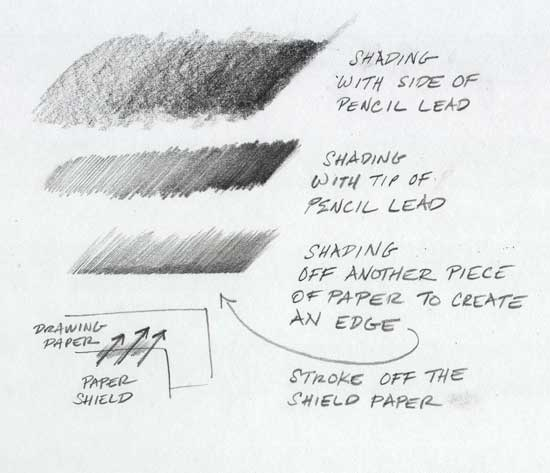 SHADING
WITH SIDE OF
PENCIL LEAD
SHADING
WITH TIP OF
PENCIL LEAD
SHADING
OFF ANOTHER PIECE
OF PAPER TO CREATE
AN EDGE
DRAWING
PAPER
PAPER
SHIELD
STROKE OFF THE
SHIELD PAPER